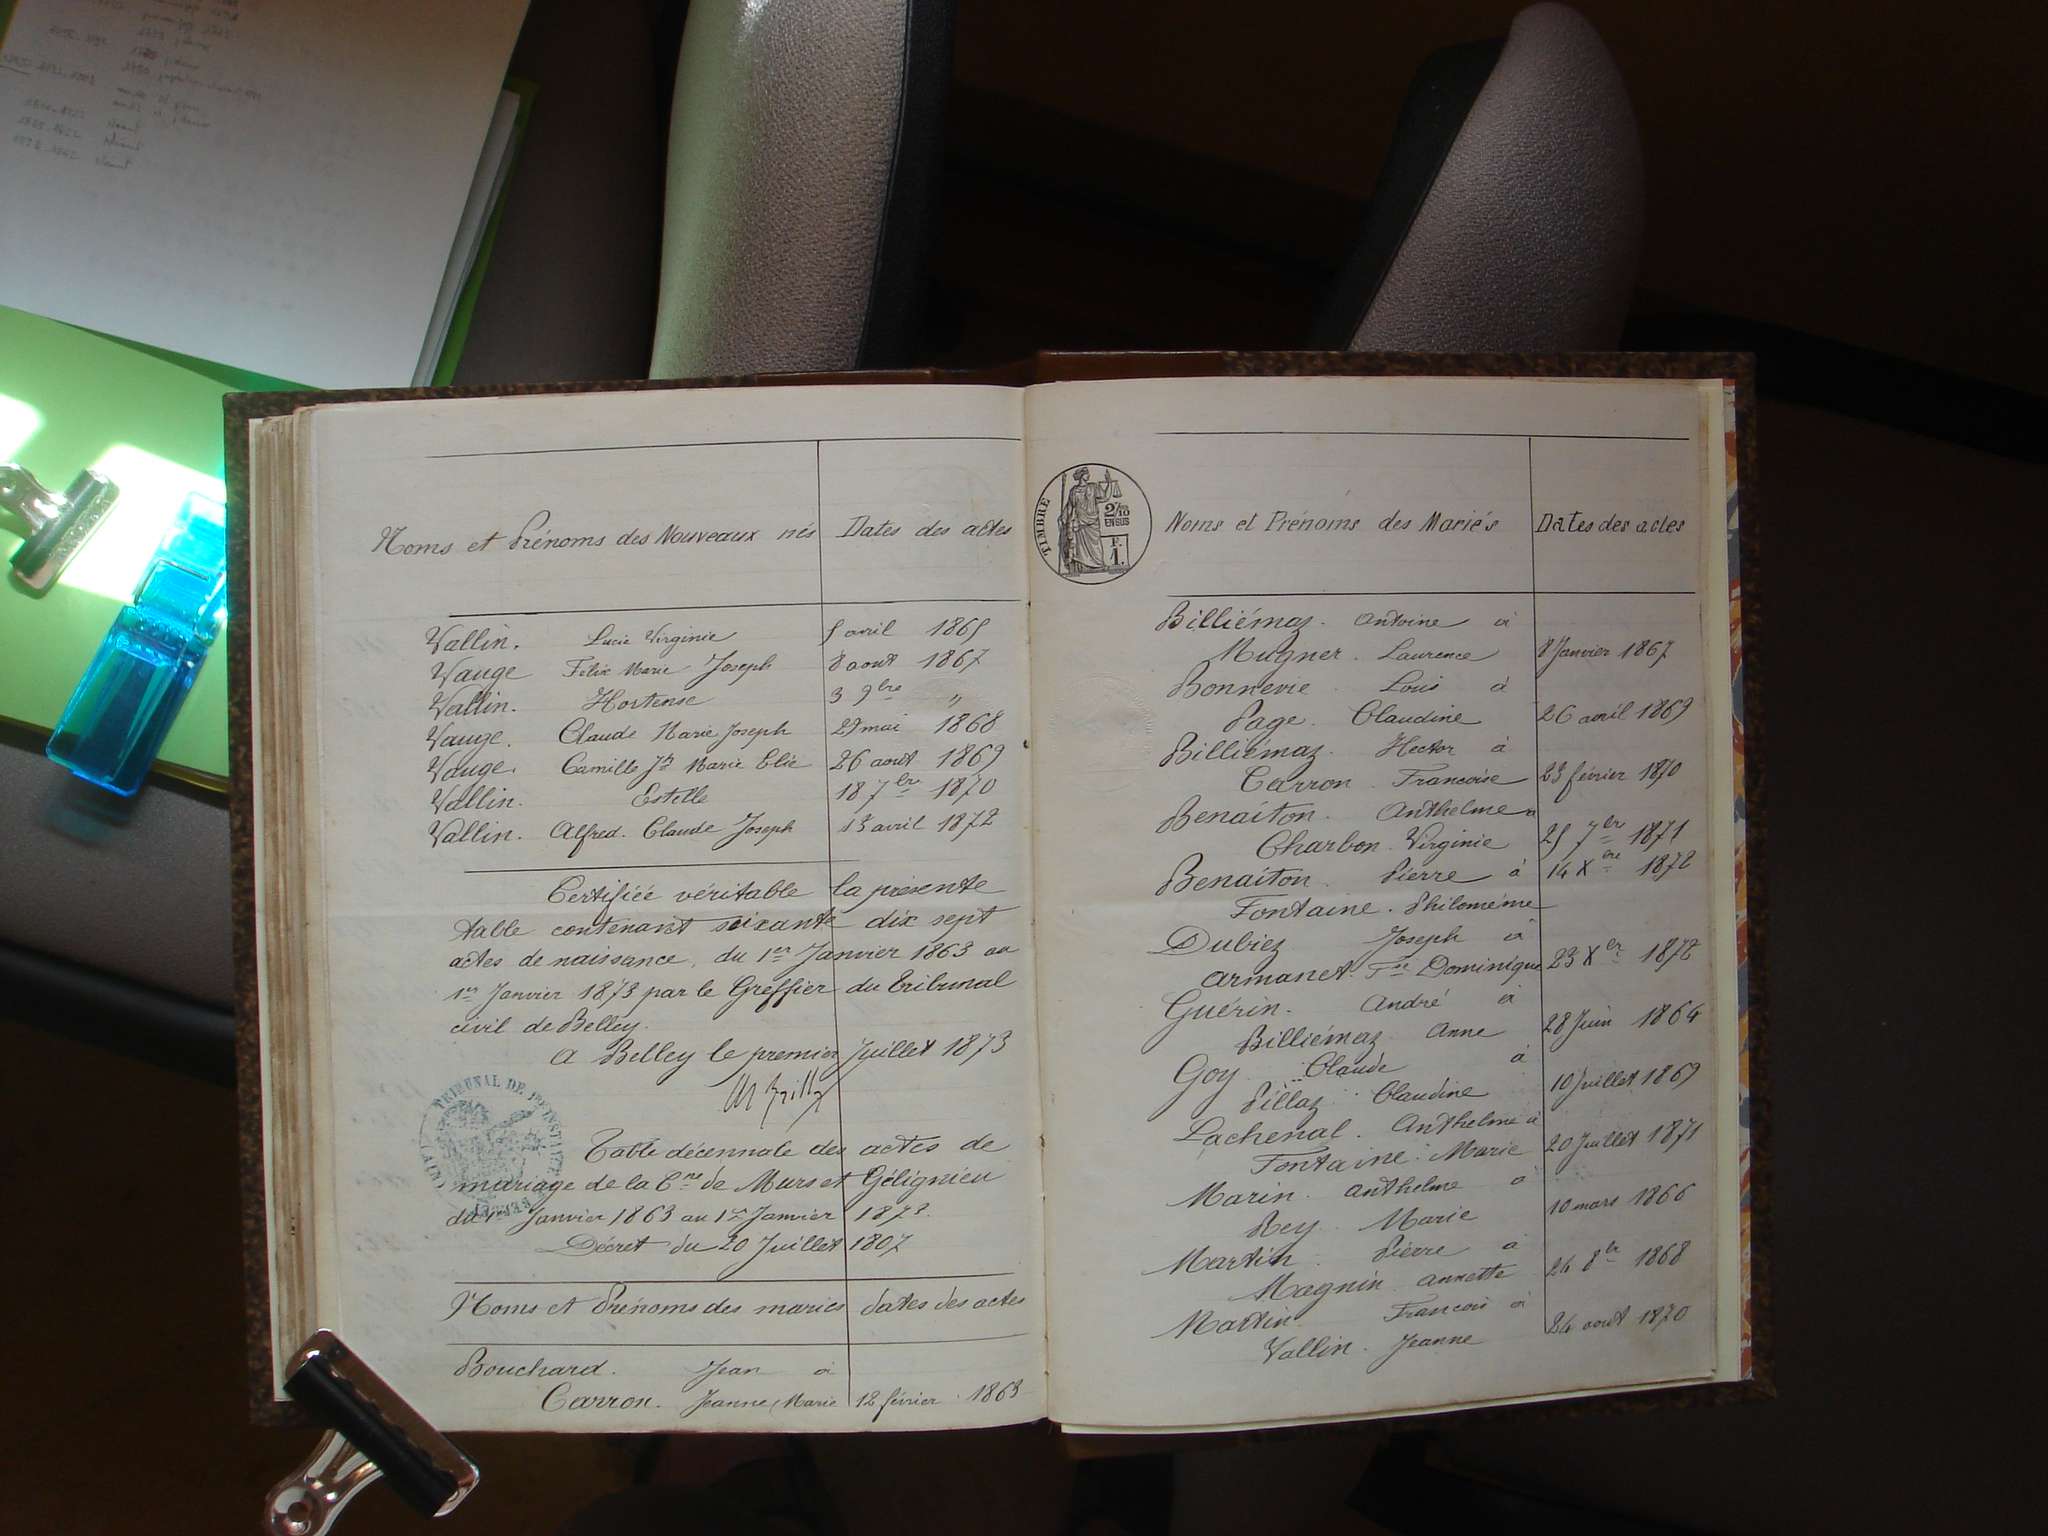 Noms et Prénoms des Nouveaux nés Dates des actes
Vallin. Lucie Virginie 5 avril 1865
Vauge Félix Marie Joseph 8 aout 1867
Vallin. Hortense 3 9bre "
Vauge. Claude Marie Joseph 29 mai 1868
Vauge. Camille Jh Marie Elie 26 aout 1869
Vallin. Estelle 18 7bre 1870
Vallin. Alfred. Claude Joseph 13 avril 1872
Certifiée véritable la présente
table contenant soixante dix sept
actes de naissance, du 1er Janvier 1863 au
1er Janvier 1873 par le Greffier du Tribunal
civil de Belley.
A Belley le premier Juillet 1873
TRIBUNAL DE 1RE INSTANCE
Table décennale des actes de
mariage de la Cne de Murs et Gélignieu
du 1er Janvier 1863 au 1er Janvier 1873.
Décret du 20 Juillet 1807
Noms et Prénoms des mariés dates des actes
Bouchard. Jean à
Carron. Jeanne Marie 12 février 1863
TIMBRE
2/10
EN SUS
F.
1.
Noms et Prénoms des Mariés Dates des actes
Billiémaz. Antoine à
Mugner. Laurence 8 Janvier 1867
Bonnevie. Louis à
Page. Claudine 26 avril 1869
Billiémaz. Hector à
Carron. Francoise 23 février 1870
Benaiton. Anthelme à
Charbon. Virginie 25 7bre 1871
Benaiton. Pierre à 14 Xbre 1872
Fontaine. Philomène
Dubiez Joseph à
Armanet. Fse Dominique 23 Xbre 1872
Guérin. André à
Billiémaz. Anne 28 Juin 1864
Goy. Claude à
Pillaz. Claudine 10 Juillet 1869
Lachenal. Anthelme à
Fontaine. Marie 20 Juillet 1871
Marin. Anthelme à
Rey. Marie 10 mars 1866
Martin. Pierre à
Magnin Annette 24 8bre 1868
Martin. Francois à
Vallin. Jeanne 24 aout 1870